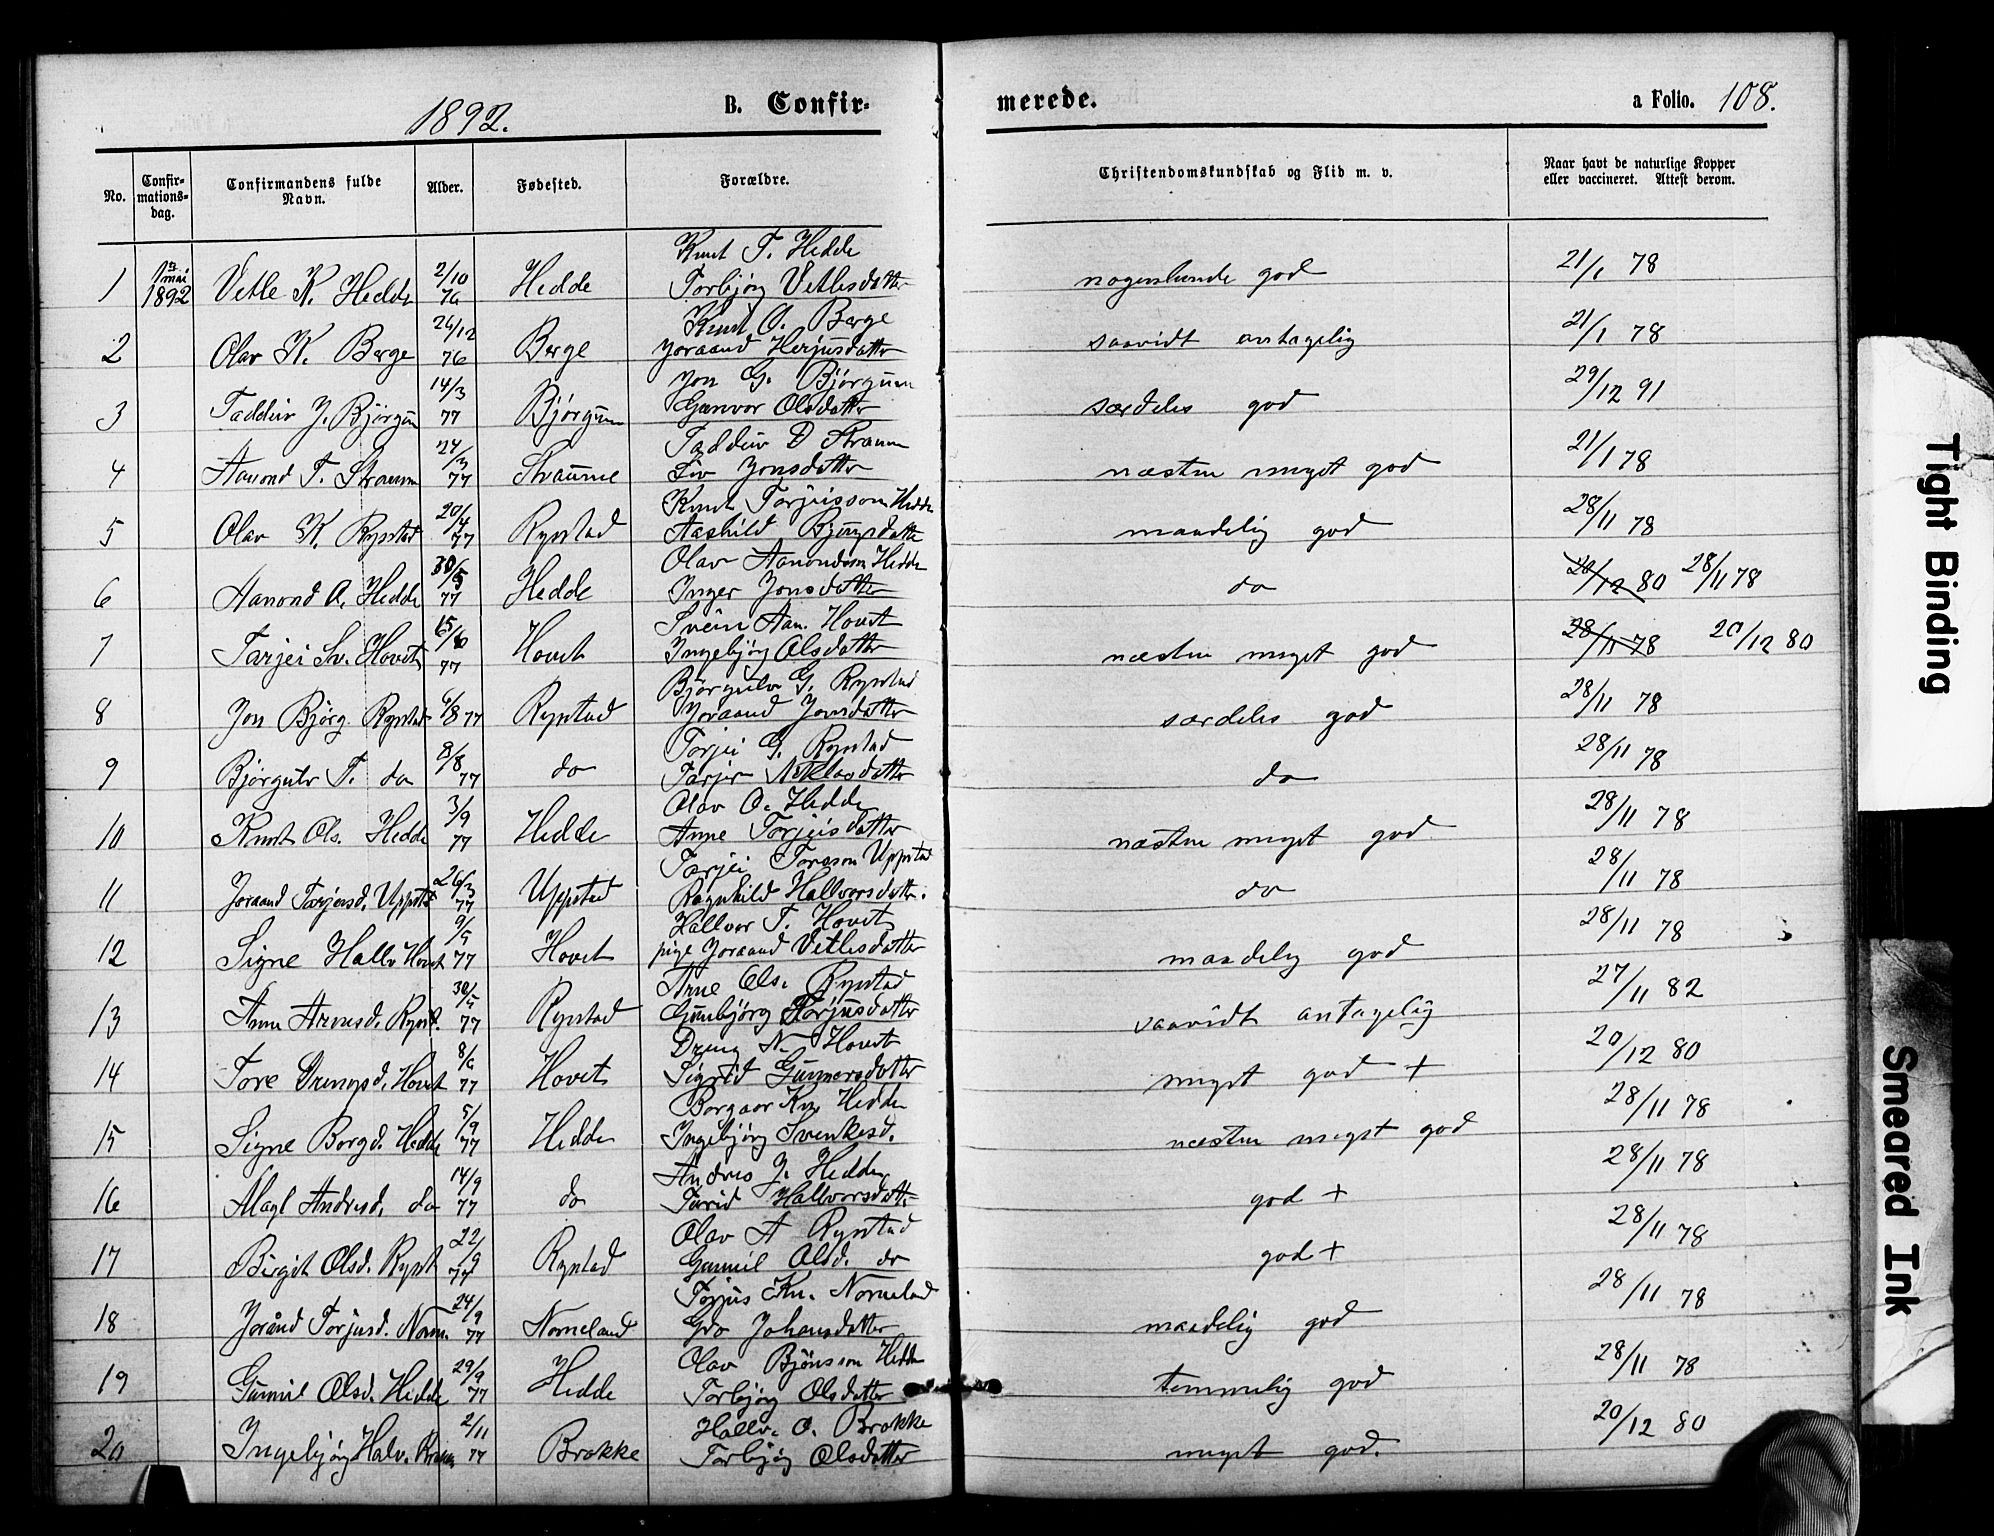 1892. B. Confir- merede. a Folio. 108.
No. Confir-mations-dag. Confirmandens fulde Navn. Alder. Fødested. Forældre. Christendomskundskab og Flid m. v. Naar havt de naturlige Kopper eller vaccineret. Attest derom.
Knut T. Hedde
1 1ste mai 1892 Vetle K. Hedde 2/10 76 Hedde Torbjørg Vetlesdatter nogenlunde god 21/1 78
Knut O. Berge
2 Olav K. Berge 26/12 76 Berge Joraand Herjusdatter saavidt antagelig 21/1 78
Jon G. Bjørgum
3 Taddeiv J. Bjørgum 14/3 77 Bjørgum Gunvor Olsdatter særdeles god 29/12 91
Taddeiv D Straum
4 Aanond T. Straum 24/3 77 Straume Liv Jonsdatter næsten meget god 21/1 78
Knut Torjeisson Hedde
5 Olav K. Rystad 20/4 77 Rystad Aashild Bjugsdatter maadelig god 28/11 78
Olav Aanondson Hedde
6 Aanond O. Hedde 30/5 77 Hedde Inger Jonsdatter do 20/12 80 28/11 78
Svein Aan. Hovet
7 Tarjei Sv. Hovet 15/6 77 Hovet Ingebjørg Olsdatter næsten meget god 28/11 78 20/12 80
Bjørgulv G. Rystad
8 Jon Bjørg. Rystad 6/8 77 Rystad Joraand Jonsdatter særdeles god 28/11 78
Torjei G. Rystad
9 Bjørgulv T. do 8/8 77 do Tarjer Niklasdatter do 28/11 78
Olav O. Hedde
10 Knut Ols. Hedde 3/9 77 Hedde Anne Torjeisdatter næsten meget god 28/11 78
Tarjei Toresson Uppstad
11 Joraand Tarjeisd. Uppst 26/3 77 Uppstad Ragnhild Hallvorsdatter. do 28/11 78
Hallvor T. Hovet
12 Signe Hallv Hovet 9/5 77 Hovet pige Joraand Vetlesdatter maadelig god 28/11 78
Arne Ols. Rystad
13 Anne Arnesd. Ryst. 30/5 77 Rystad Gunbjørg Torjusdatter saavidt antagelig 27/11 82
Dreng N. Hovet
14 Tore Drengsd. Hovet 8/6 77 Hovet Sigrid Gunnarsdatter meget god + 20/12 80
Borgaar Kn. Hedde
15 Signe Borgd. Hedde 5/9 77 Hedde Ingebjørg Svenkesd. næsten meget god 28/11 78
Andres J. Hedde
16 Alagl Andresd. do 14/9 77 do Turid Hallvorsdatter god + 28/11 78
Olav A Rystad
17 Birgit Olsd. Ryst 22/9 77 Rystad Gunnil Olsd. do god + 28/11 78
Torjus Kn. Nomeland
18 Jorånd Torjusd. Nom. 24/9 77 Nomeland Gro Johansdatter maadelig god 28/11 78
Olav Bjønsson Hedde
19 Gunnil Olsd. Hedde 29/9 77 Hedde Torbjørg Olsdatter temmelig god 28/11 78
Hallv. O. Brokke
20 Ingebjørg Halv. 2/11 77 Brokke Torbjørg Olsdatter meget god. 20/12 80
Tight Binding
Smeared Ink